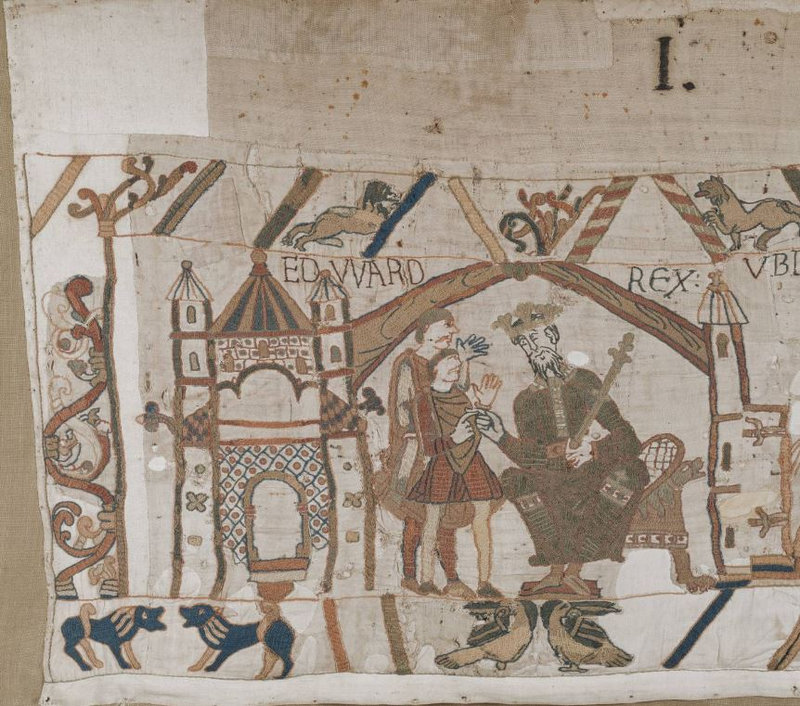 I.
EDVVARD REX: VBI